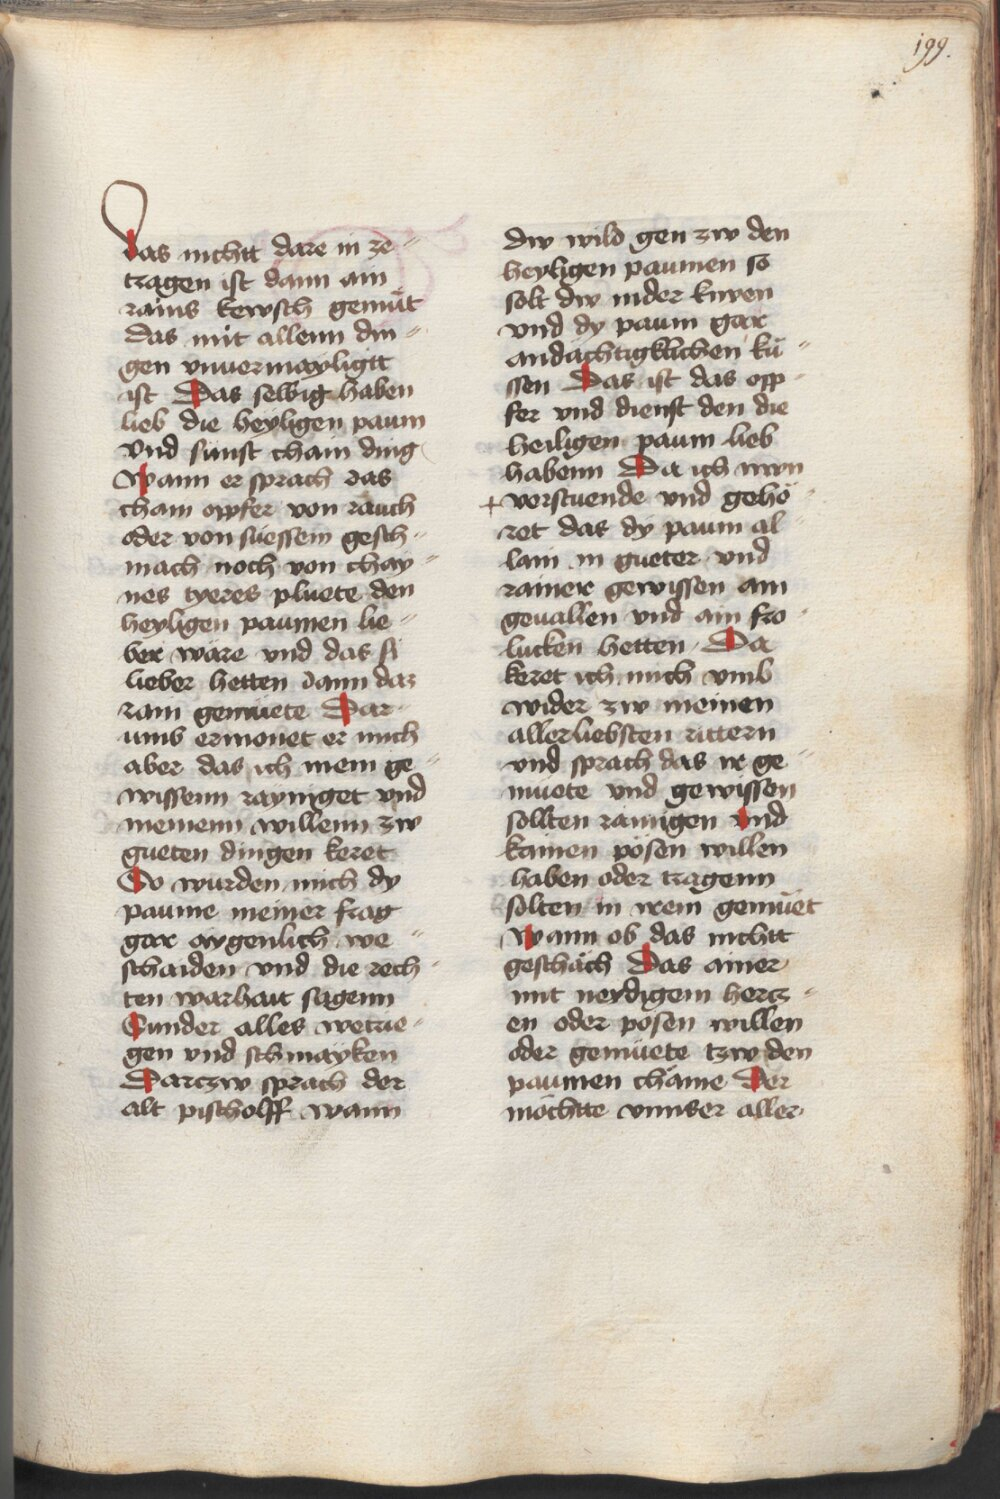 199.
das nichtt dare in ze=
tragen ist dann ain
rains kewsch gemüt
das mit allenn din=
gen vnuermayligtt
ist Das selbig haben
lieb die heyligen paum
vnd sunst chain ding
Wann er sprach das
chain opfer von rauch
oder von süessem gesch=
mach noch von chay=
nes tyeres pluete den
heyligen paumen lie=
ber wäre vnd das si
lieber hetten dann daz
rain gemüete Dar
umb ermonet er mich
aber das ich mein ge=
wissenn rayniget vnd
meinenn willenn zw
gueten dingen keret
So wurden mich dy
paume meiner frag
gar aygenlich we=
schaiden vnd die rech=
ten warhait sagenn
Sunder alles wetrie=
gen vnd schmayken
Darczw sprach der
alt pischolff wann
dw wild gen zw den
heyligen paumen so
solt dw nider knyen
vnd dy paum gar
andachtigklichen kü=
ssen Das ist das opp=
fer vnd dienst den die
heiligen paum lieb
habenn Da ich nwn
+ verstuende vnd gehö=
ret das dy paum al=
lain in gueter vnd
rainer gewissen ain
geuallen vnd ain fro=
lucken hetten Da
keret ich mich vmb
wider zw meinen
allerliebsten rittern
vnd sprach das ir ge=
muete vnd gewissen
sollten rainigen vnd
kainen pösen willen
haben oder tragenn
solten in irem gemüet
Wann ob das nichtt
geschäch Das ainer
mit neydigem hercz=
en oder pösen willen
oder gemüete tzw den
paumen chäme Der
möchtte vnnser aller